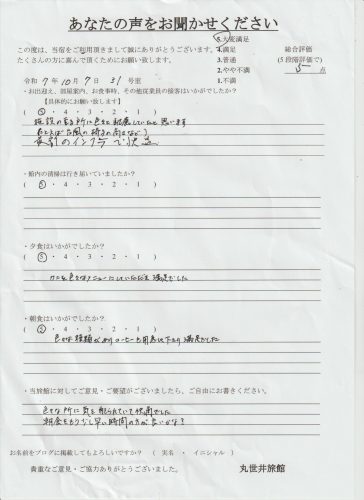 あなたの声をお聞かせください
この度は、当宿をご利用頂きまして誠にありがとうございます。
たくさんの方に喜んで頂くためにお願い致します。
5.大変満足
4.満足
3.普通
2.やや不満
1.不満
総合評価
(5段階評価で)
5 点
令和 7年 10月 9日 31 号室
・お出迎え、部屋案内、お食事時、その他従業員の接客はいかがでしたか?
【具体的にお願い致します】
( ⑤ ・ 4 ・ 3 ・ 2 ・ 1 )
施設の 所に色々と配慮していると思います
お風呂の椅子の高さなど)
最新のインフラで快適
・館内の清掃は行き届いていましたか?
( 5 ・ 4 ・ 3 ・ 2 ・ 1 )
・夕食はいかがでしたか?
( ⑤ ・ 4 ・ 3 ・ 2 ・ 1 )
カニを色々なメニューにしていただき満足でした
・朝食はいかがでしたか?
( ⑤ ・ 4 ・ 3 ・ 2 ・ 1 )
色々な種類がありコーヒーも用意 満足でした
・当旅館に対してご意見・ご要望がございましたら、ご自由にお書きください。
色々な所に気を配られていて快適でした
朝食をもう少し早い時間の方が良いかな?
お名前をブログに掲載してもよろしいですか? ( 実名 ・ イニシャル )
貴重なご意見・ご協力ありがとうございました。
丸世井旅館